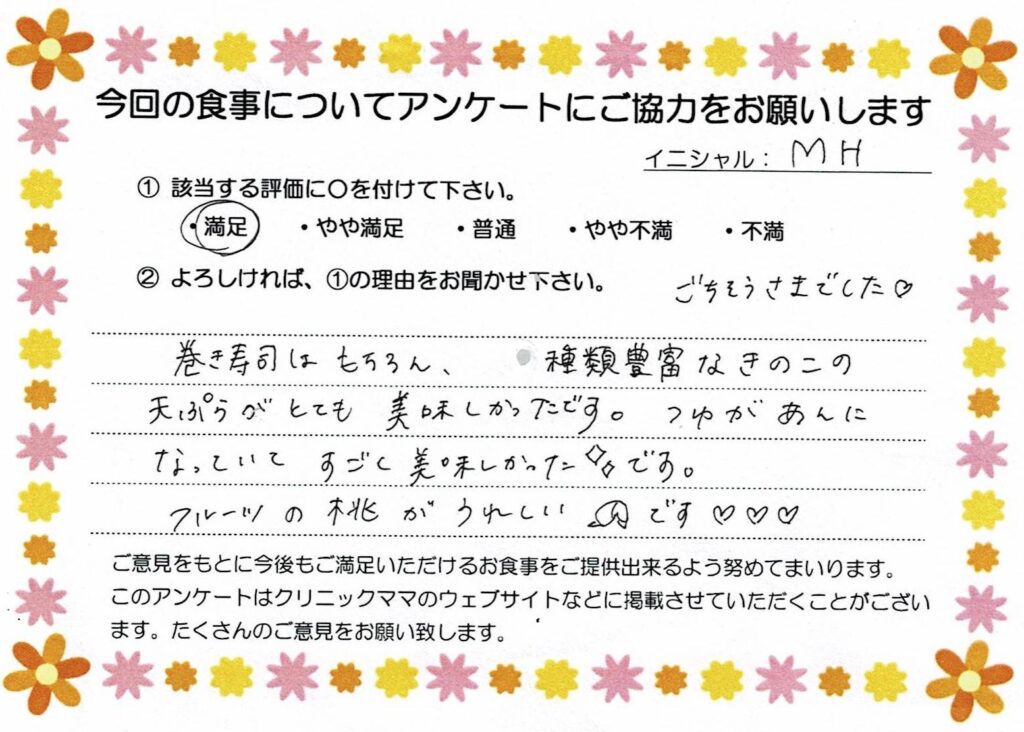 今回の食事についてアンケートにご協力をお願いします
イニシャル：MH
① 該当する評価に〇を付けて下さい。
・満足 ・やや満足 ・普通 ・やや不満 ・不満
② よろしければ、①の理由をお聞かせ下さい。
ごちそうさまでした♡
巻き寿司はもちろん、種類豊富なきのこの
天ぷらがとても美味しかったです。つゆがあんに
なっていてすごく美味しかった✧✧です。
フルーツの桃がうれしいです♡♡♡
ご意見をもとに今後もご満足いただけるお食事をご提供出来るよう努めてまいります。
このアンケートはクリニックママのウェブサイトなどに掲載させていただくことがござい
ます。たくさんのご意見をお願い致します。